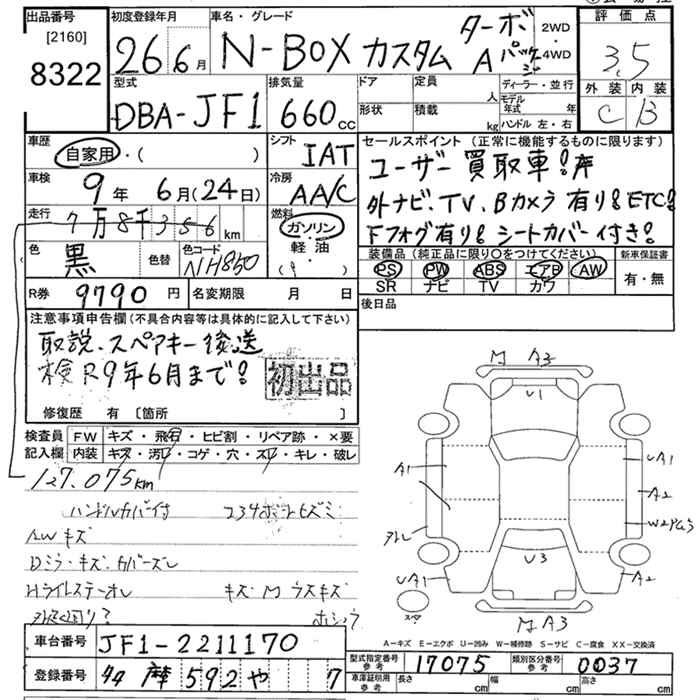 出品番号 [2160] 8322
初度登録年月 26年6月
車名・グレード N-BOX カスタム ターボ Aパッケージ
2WD・4WD
評価点 3.5
外装 C 内装 B
型式 DBA-JF1
排気量 660cc
ドア 形状
定員 人 積載 kg
ディーラー・並行
モデル年式 年
ハンドル 左・右
車歴 自家用・( )
シフト IAT
セールスポイント (正常に機能するものに限ります)
ユーザー買取車!
外ナビ、TV、Bカメラ有り! ETC!
Fフォグ有り! シートカバー付き!
車検 9年6月(24日)
冷房 AA/C
走行 7万8千356km
燃料 ガソリン 軽・油
色 黒 色替
色コード NH850
装備品 (純正品に限り○をつけてください) 新車保証書
PS PW ABS エアB AW 有・無
SR ナビ TV カワ
R券 9790円 名変期限 月 日
後日品
注意事項申告欄 (不具合内容等は具体的に記入して下さい)
取説、スペアキー後送
検R9年6月まで!
初出品
修復歴 有 [箇所 ]
検査員記入欄 FW キズ・飛石・ヒビ割・リペア跡・×要
内装 キズ・汚レ・コゲ・穴・スレ・キレ・破レ
127.075km
ハンドルカバー付
AWキズ
Dミラーキズ・カバーズレ
M A3
U1
A1
UA1
A2
U3
UA1
A2
スペア
M A3
A-キズ E-エクボ U-凹み W-補修跡 S-サビ C-腐食 XX-交換済
車台番号 JF1-2211170
登録番号 592 や 7
型式指定番号 参考 17075 類別区分番号 参考 0037
車庫証明用 参考 長さ cm 幅 cm 高さ cm